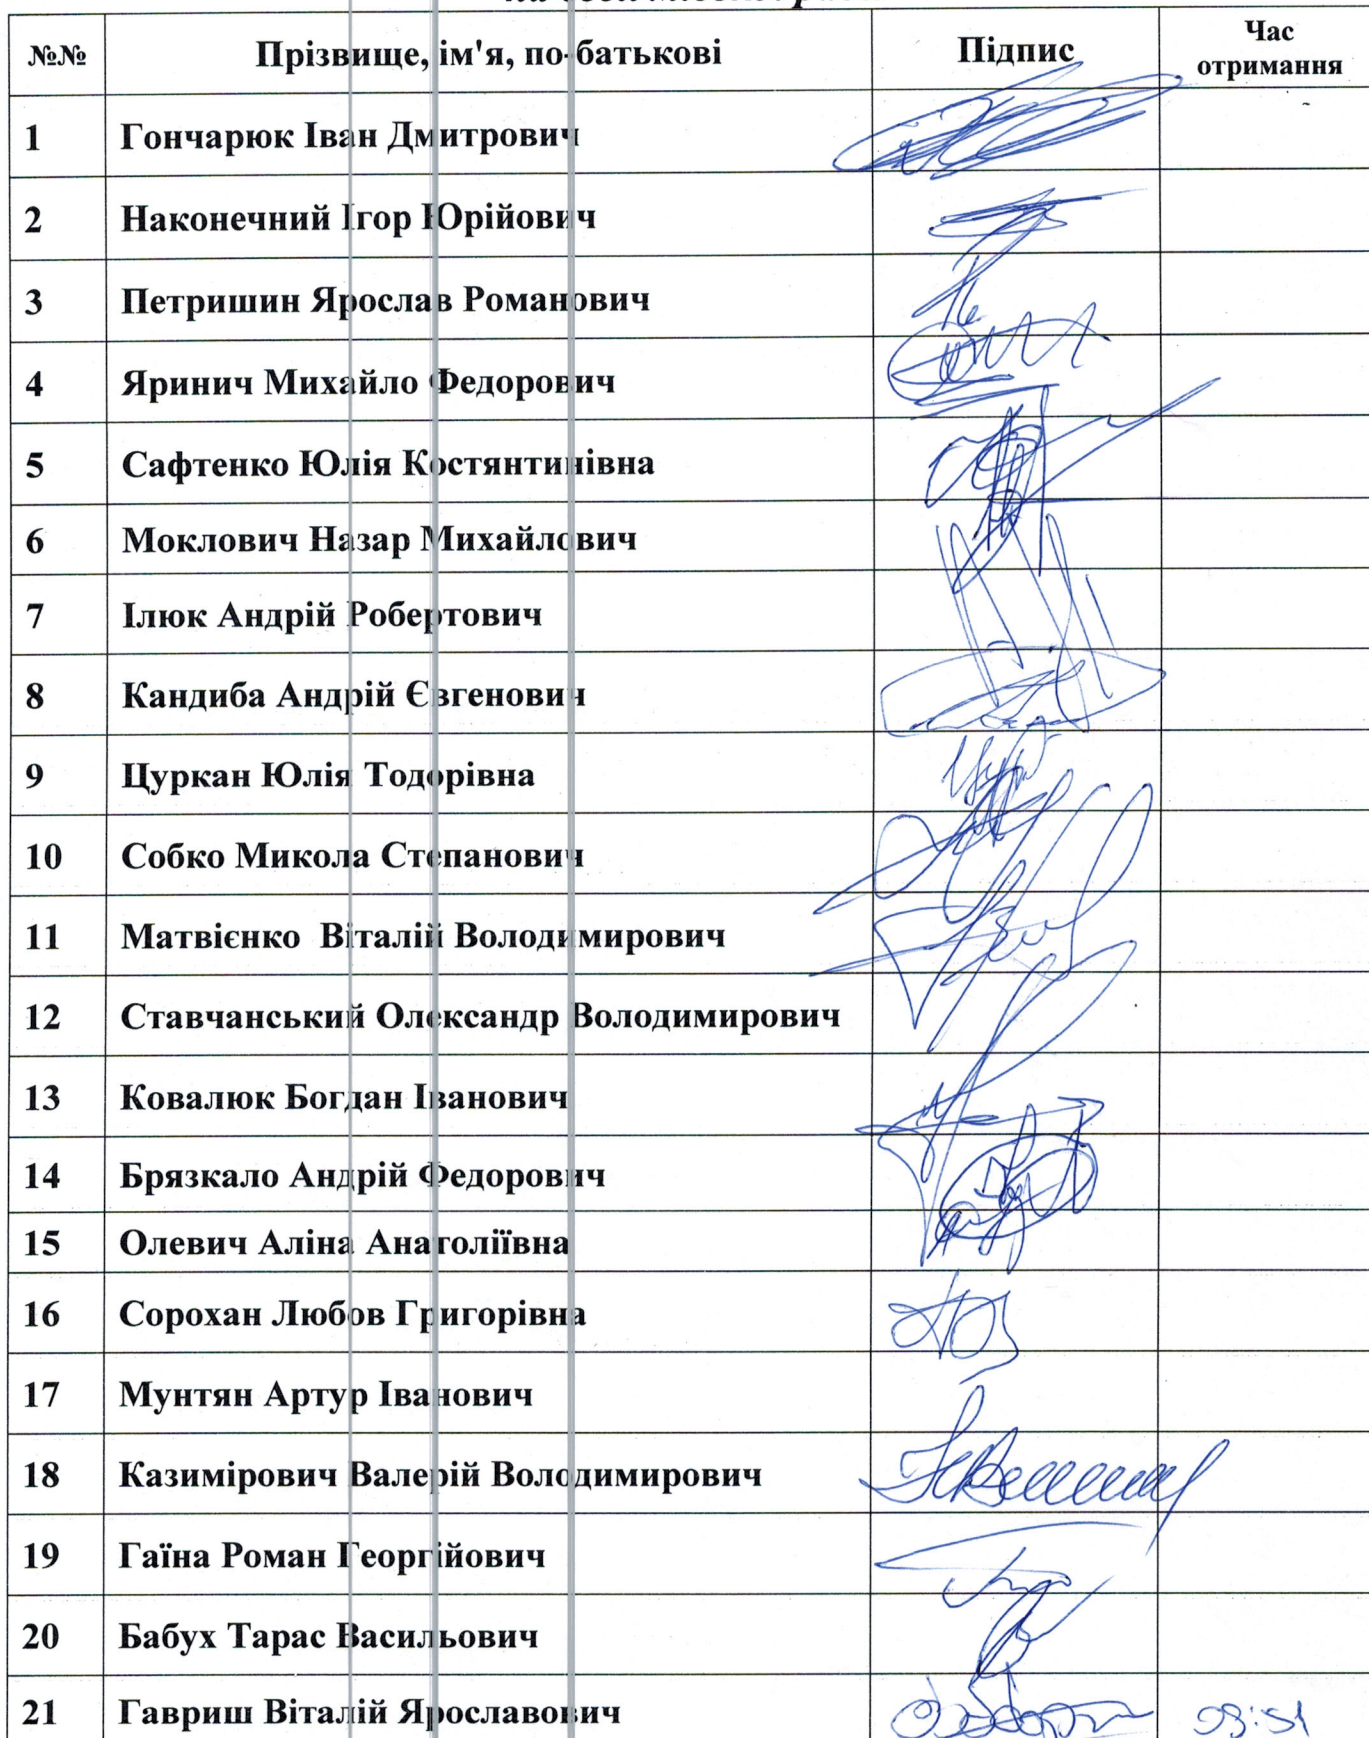 №№ Прізвище, ім'я, по-батькові Підпис Час отримання
1 Гончарюк Іван Дмитрович
2 Наконечний Ігор Юрійович
3 Петришин Ярослав Романович
4 Яринич Михайло Федорович
5 Сафтенко Юлія Костянтинівна
6 Моклович Назар Михайлович
7 Ілюк Андрій Робертович
8 Кандиба Андрій Євгенович
9 Цуркан Юлія Тодорівна
10 Собко Микола Степанович
11 Матвієнко Віталій Володимирович
12 Ставчанський Олександр Володимирович
13 Ковалюк Богдан Іванович
14 Брязкало Андрій Федорович
15 Олевич Аліна Анатоліївна
16 Сорохан Любов Григорівна
17 Мунтян Артур Іванович
18 Казимірович Валерій Володимирович
19 Гаїна Роман Георгійович
20 Бабух Тарас Васильович
21 Гавриш Віталій Ярославович